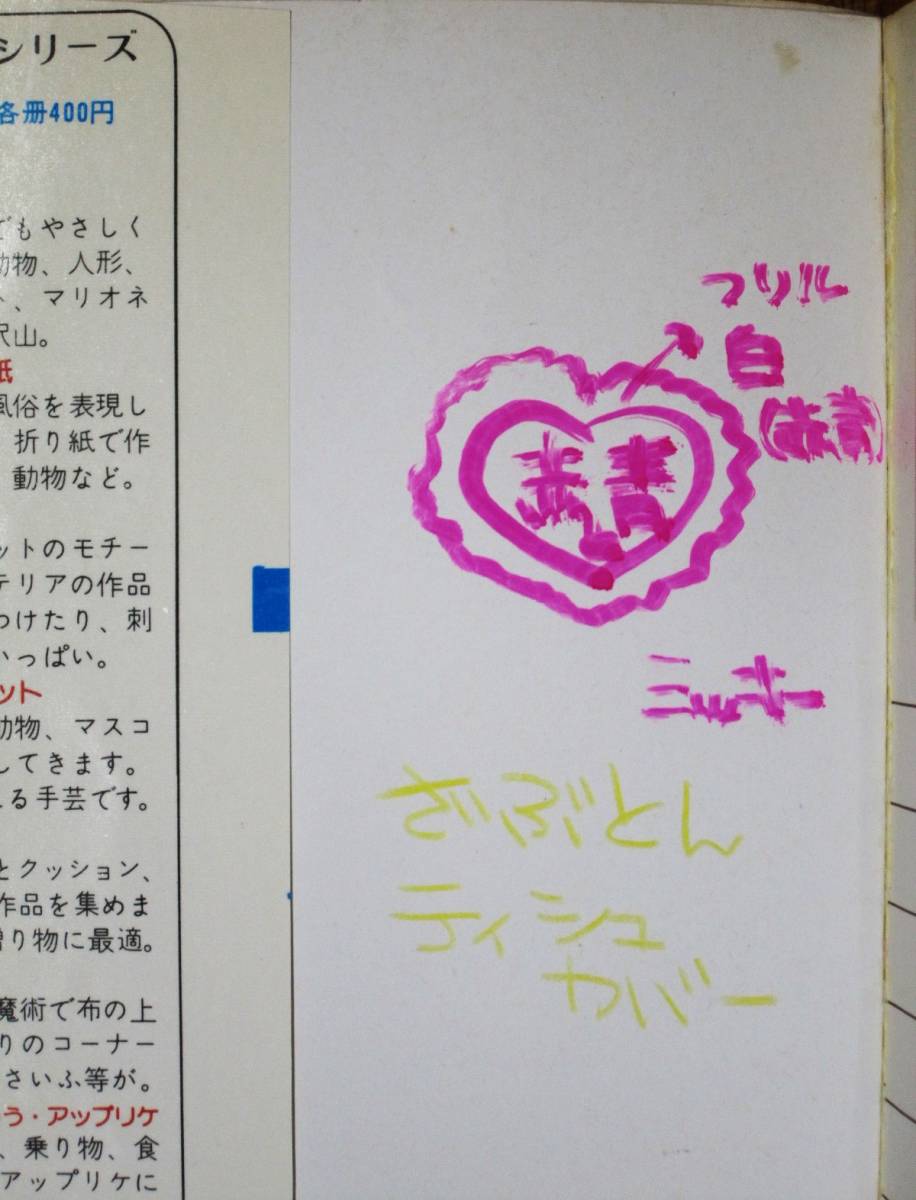 シリーズ
各冊400円
でもやさしく
動物、人形、
ト、マリオネ
沢山。
紙
風俗を表現し
折り紙で作
動物など。
ットのモチー
テリアの作品
つけたり、刺
いっぱい。
ット
動物、マスコ
してきます。
る手芸です。
とクッション、
作品を集めま
贈り物に最適。
魔術で布の上
りのコーナー
さいふ等が。
う・アップリケ
、乗り物、食
アップリケに
フリル
白
(赤青)
赤青
ミッキー
ざぶとん
ティシュ
カバー